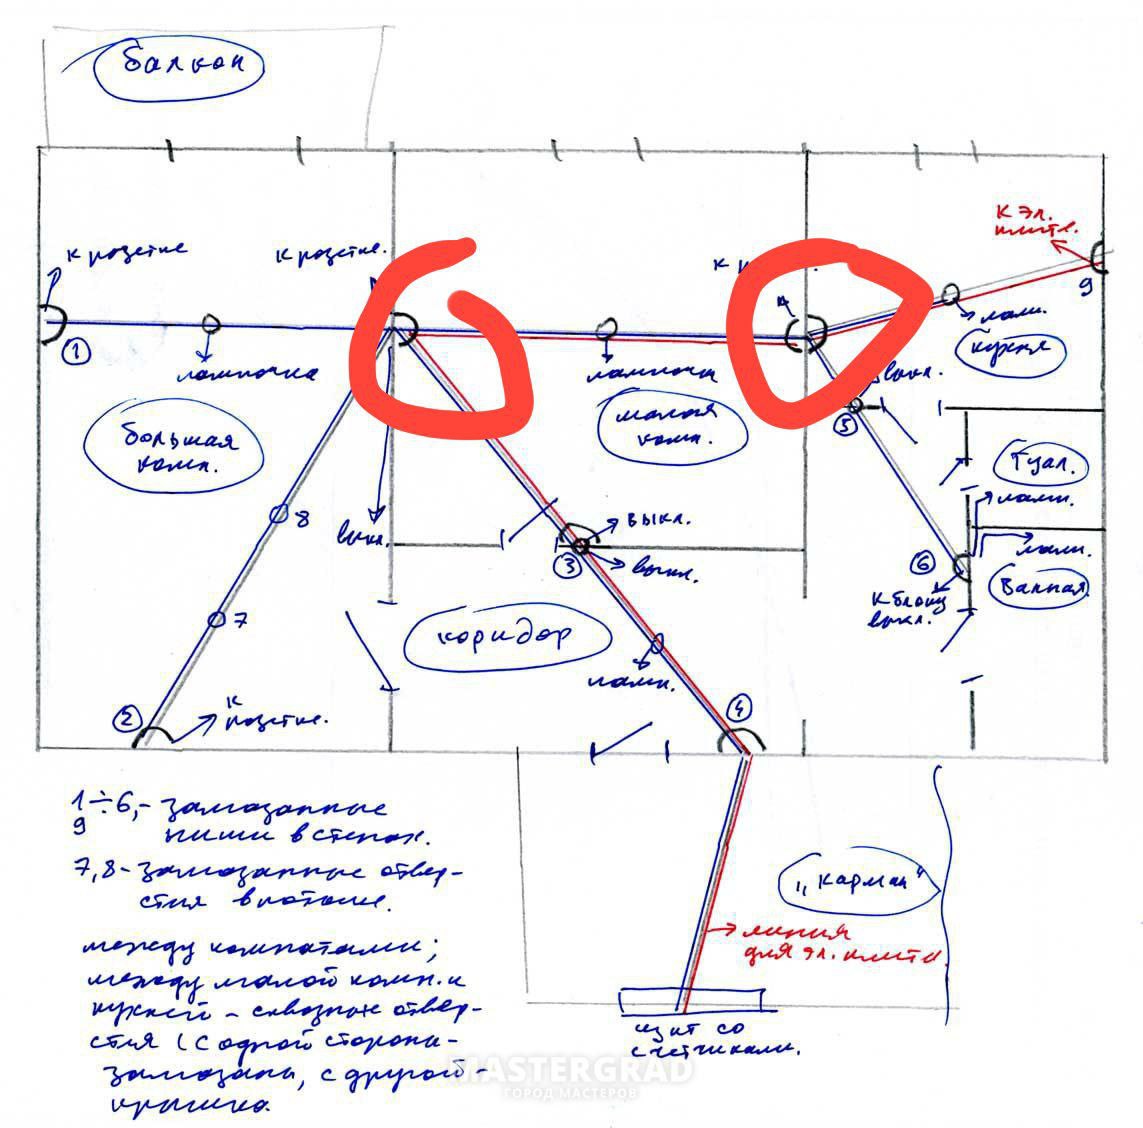 Балкон
к розетке
к розетке.
К эл.
плите.
9
лам.
кухня
1
лампочка
лампочка
выкл.
5
большая
комн.
малая
комн.
Туал.
лами.
8
выкл.
выкл.
3
выкл.
6
лами.
Ванная
К блоку
выкл.
7
коридор
ламп.
2
к
розетке.
4
1÷6,- замазанные
9 ниши в стенах.
7,8- замазанные отвер-
стия в потолке.
"карман"
между комнатами;
между малой комн. и
кухней - сквозные отвер-
стия (с одной стороны-
замазаны, с другой-
крышка.
линия
для эл. плиты.
щит со
счетчиками.
MASTERGRAD
ГОРОД МАСТЕРОВ